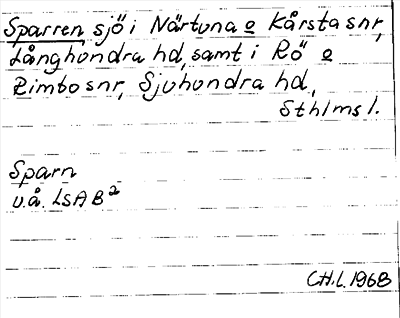 Sparren, sjö i Närtuna o Kårsta snr,
Långhundra hd, samt i Rö o
Rimbo snr, Sjuhundra hd,
Sthlms l.
Sparn
u.å. LSA B2
C.H.L. 1968